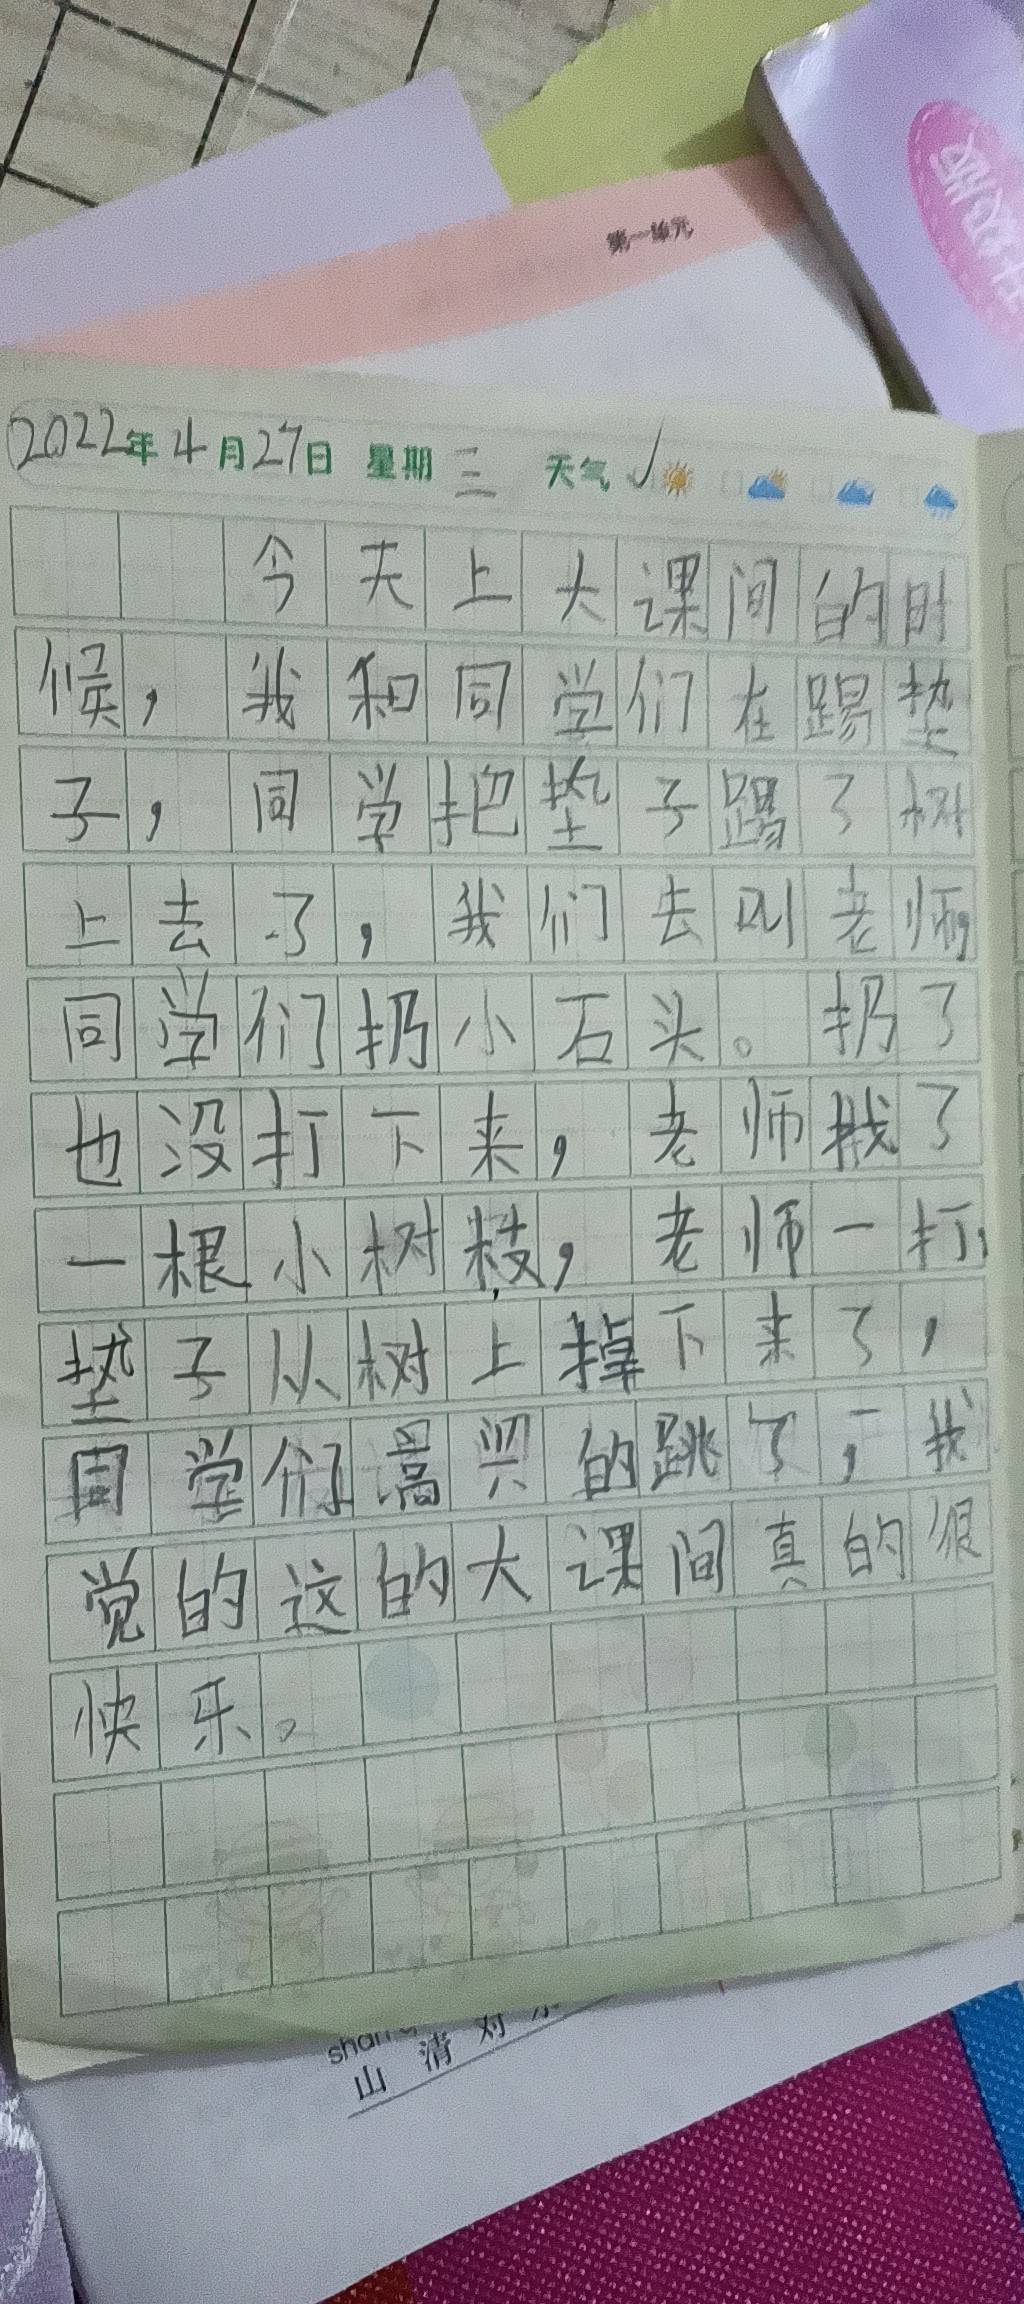 第一单元
2022年4月27日 星期三 天气 ✓
今天上大课间的时
候，我和同学们在踢垫
子，同学把垫子踢了树
上去了，我们去叫老师，
同学们扔小石头。扔了
也没打下来，老师找了
一根小树枝，老师一打，
垫子从树上掉下来了，
同学们高兴的跳了，我
觉的这的大课间真的很
快乐。
山 清 对